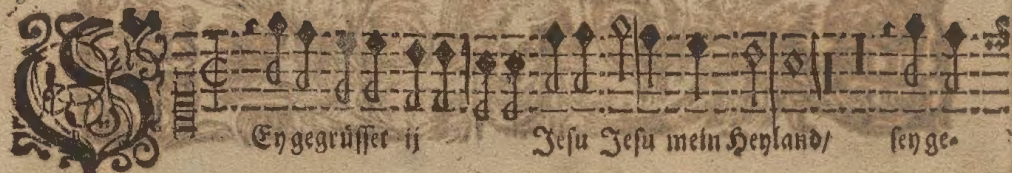 SEy gegrüsset ij Jesu Jesu mein Heyland/ sey ge-